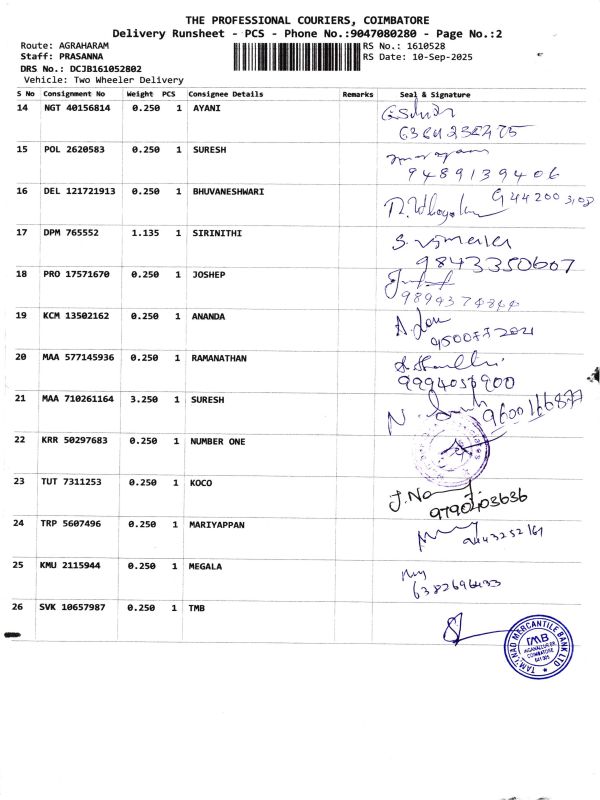 THE PROFESSIONAL COURIERS, COIMBATORE
Delivery Runsheet - PCS - Phone No.:9047080280 - Page No.:2
Route: AGRAHARAM RS No.: 1610528
Staff: PRASANNA RS Date: 10-Sep-2025
DRS No.: DCJB161052802
Vehicle: Two Wheeler Delivery
S No Consignment No Weight PCS Consignee Details Remarks Seal & Signature
14 NGT 40156814 0.250 1 AYANI
15 POL 2620583 0.250 1 SURESH
9489139406
16 DEL 121721913 0.250 1 BHUVANESHWARI
17 DPM 765552 1.135 1 SIRINITHI
9843350607
18 PRO 17571670 0.250 1 JOSHEP
19 KCM 13502162 0.250 1 ANANDA
20 MAA 577145936 0.250 1 RAMANATHAN
21 MAA 710261164 3.250 1 SURESH
9600166877
22 KRR 50297683 0.250 1 NUMBER ONE
23 TUT 7311253 0.250 1 KOCO
24 TRP 5607496 0.250 1 MARIYAPPAN
9443252161
25 KMU 2115944 0.250 1 MEGALA
26 SVK 10657987 0.250 1 TMB
TAMILNAD MERCANTILE BANK LTD
TMB
COIMBATORE